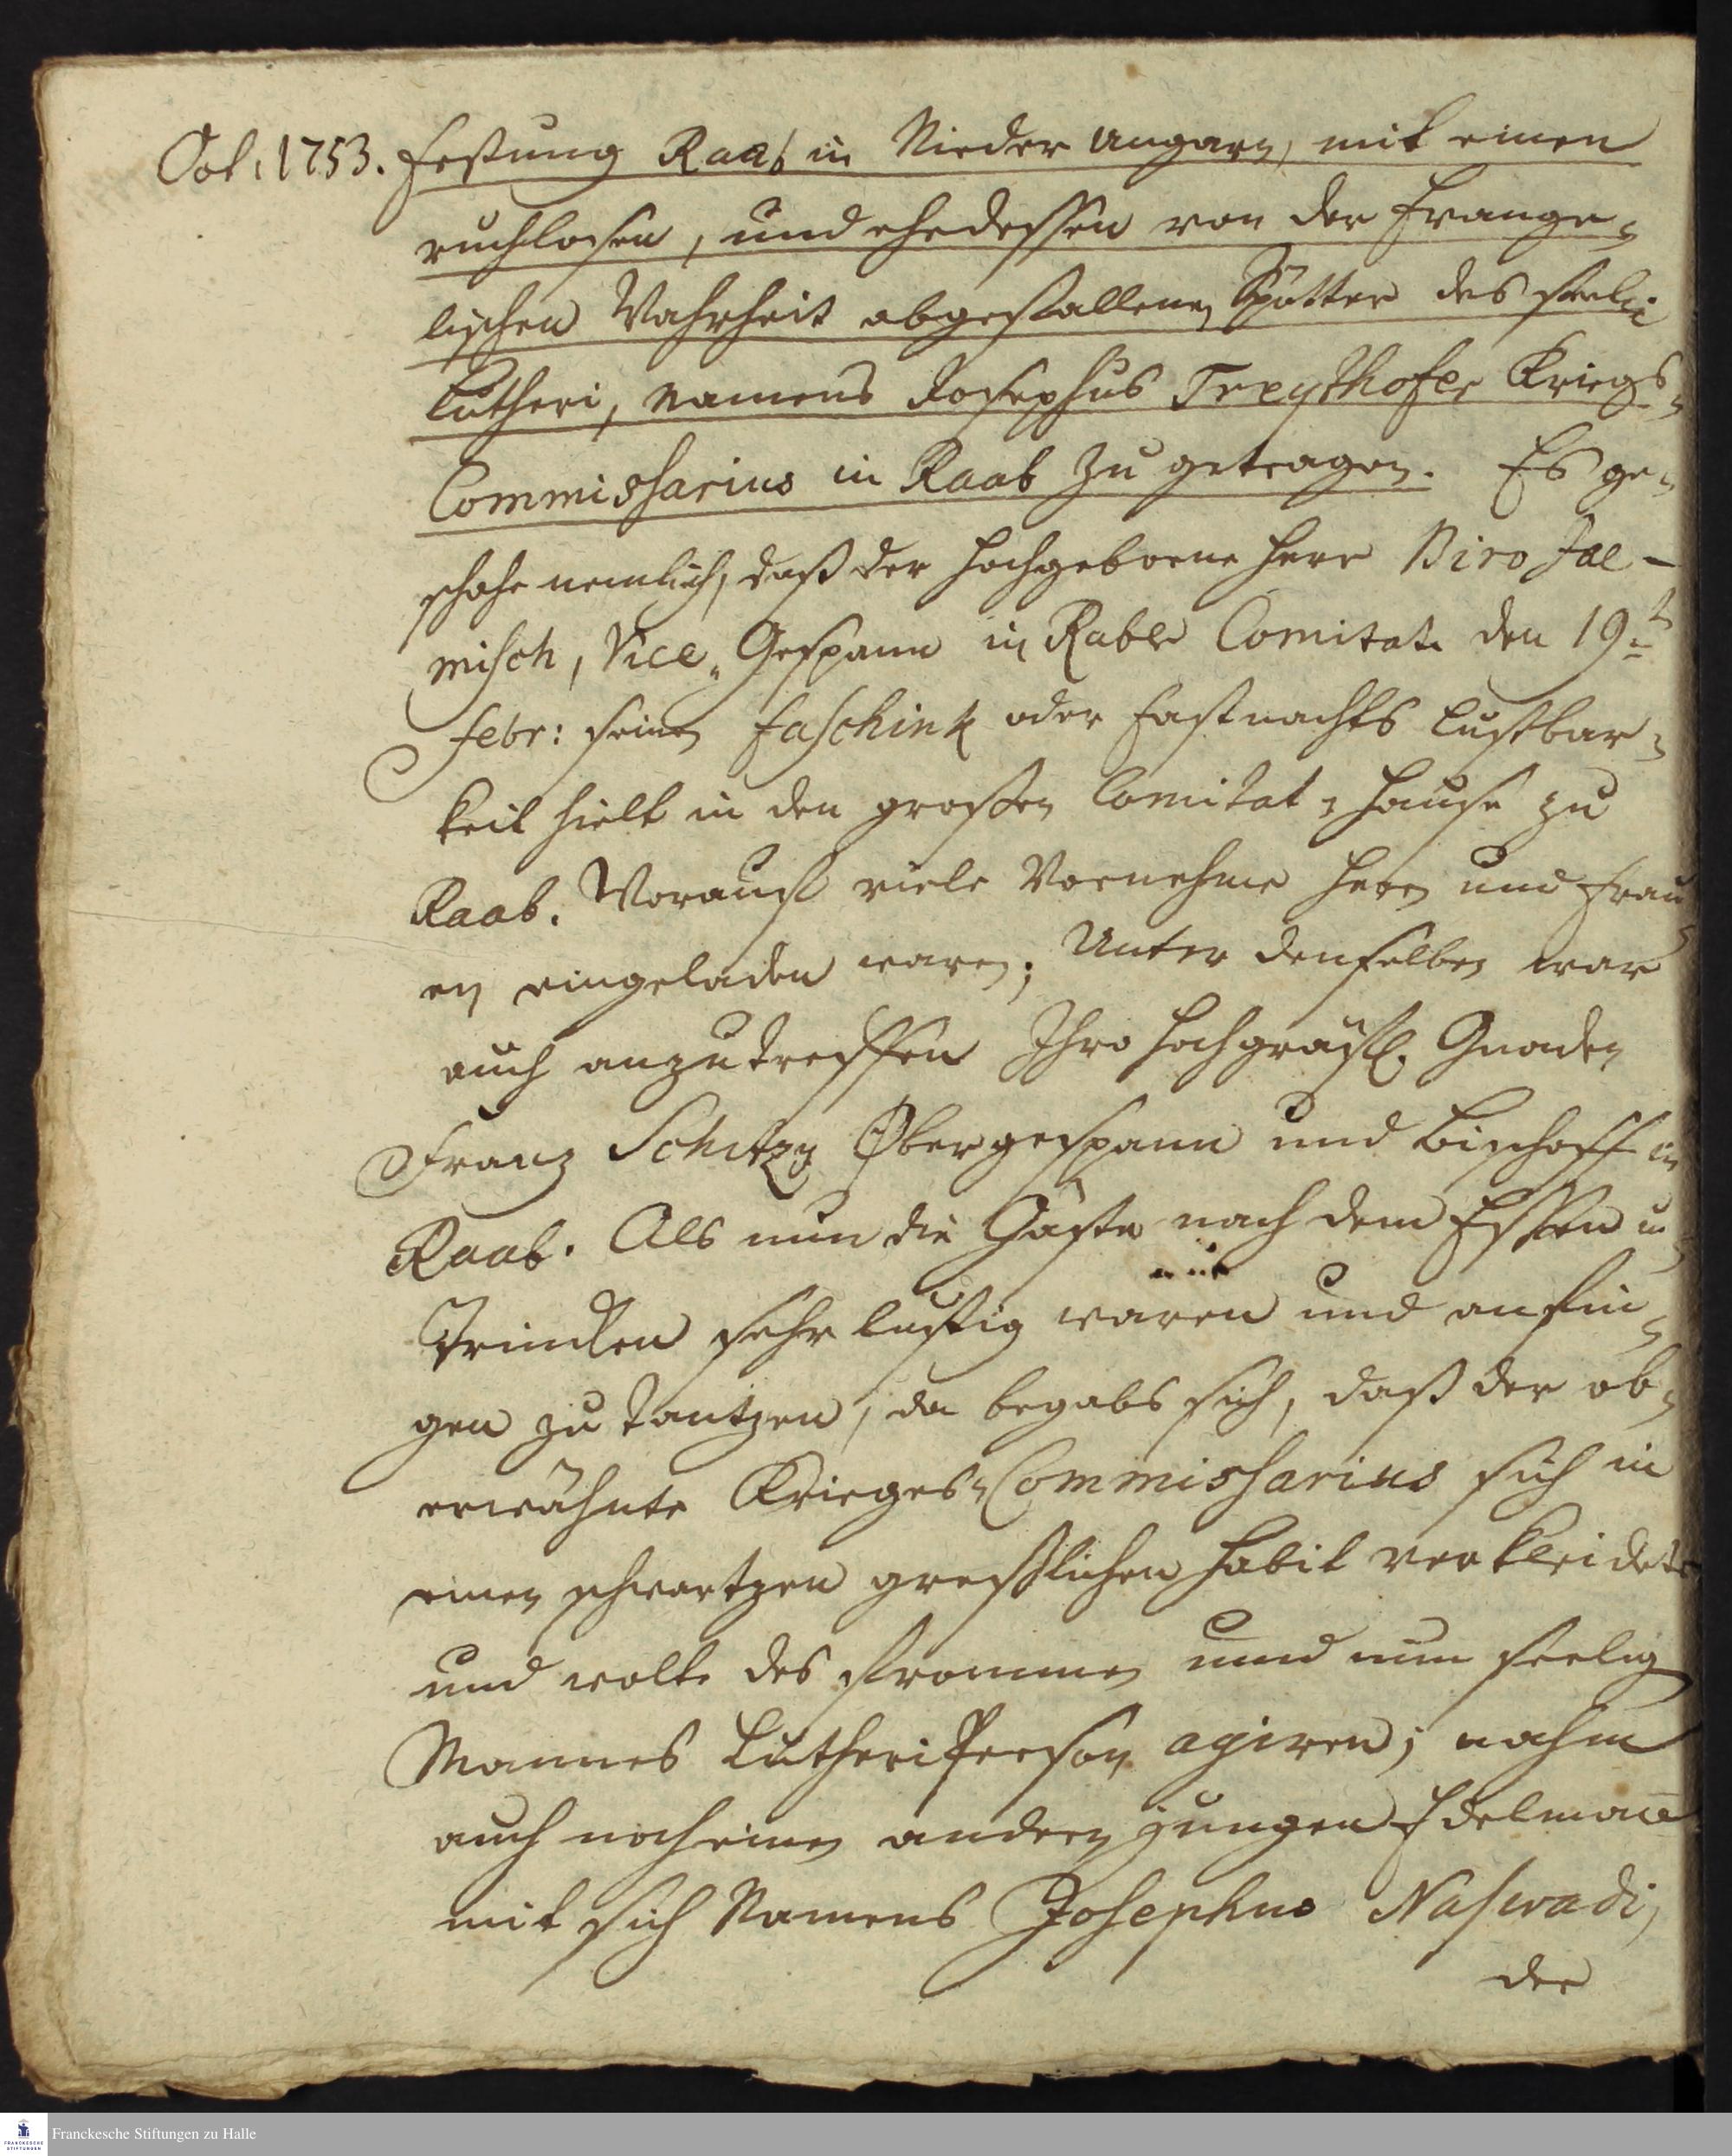 Oct: 1753. Festung Raab in Nieder Ungarn, mit einen
ruchlosen, und ehedessen von der Evange-
lischen Wahrheit abgefallenen Spötter des seel:
Lutheri, Namens Josephus Kriegs-
Commissarius in Raab zu getragen. Es ge-
schahe nemlich, daß der Hochgeborne Herr Biro Jal-
misch, Vice-Gespann in Raber Comitat den 19t
Febr: seinen Faschink oder Fastnachts Lustbar-
keit hielt in den großen Comitat-Hause zu
Raab. Worauf viele Vornehme Herrn und Frau-
en eingeladen waren; Unter denselben war
auch anzutreffen Ihro Hochgräfl. Gnaden
Franz Obergespann und Bischoff in
Raab. Als nun die Gäste nach dem Essen u.
Trincken sehr lustig waren und anfin-
gen zu tantzen, da begabs sich, daß der ob-
erwähnte Krieges-Commissarius sich in
einen schwartzen greßlichen Habit verkleidete
und wolte des frommen und nun seelig
Mannes Lutheri Person agiren; nahm
auch noch einen andern jungen Edelmann
mit sich Namens Josephus Naswadi,
der
Franckesche Stiftungen zu Halle
FRANCKESCHE STIFTUNGEN